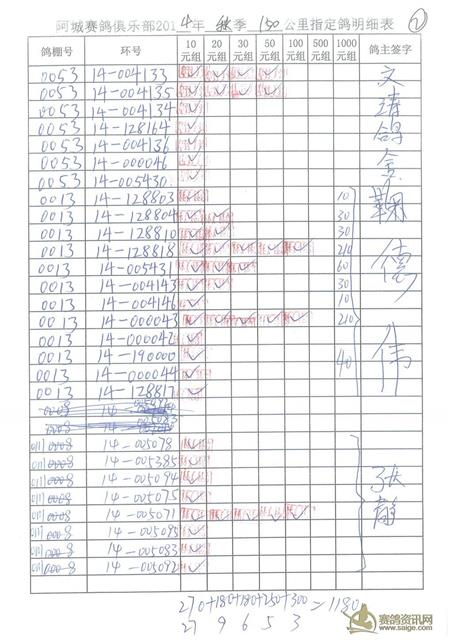 阿城赛鸽俱乐部2014年秋季150公里指定鸽明细表 ②
鸽棚号 环号 10元组 20元组 30元组 50元组 100元组 500元组 1000元组 鸽主签字
0053 14-004133
0053 14-004135
0053 14-004134
0053 14-128164
0053 14-004136
0053 14-000046
0053 14-005430
0013 14-128803 10
0013 14-128804 30
0013 14-128810 30
0013 14-128818 210
0013 14-005431 60
0013 14-004143 30
0013 14-004146 10
0013 14-000043 210
0013 14-000042
0013 14-190000 40
0013 14-000044
0013 14-128817
0008
0008
0008 14-005078
0008 14-005385
0008 14-005094
0008 14-005075
0008 14-005071
0008 14-005095
0008 14-005083
0008 14-005092
德伟
270+180+180+250+300=1180
27 9 6 5 3
赛鸽资讯网
www.saige.com